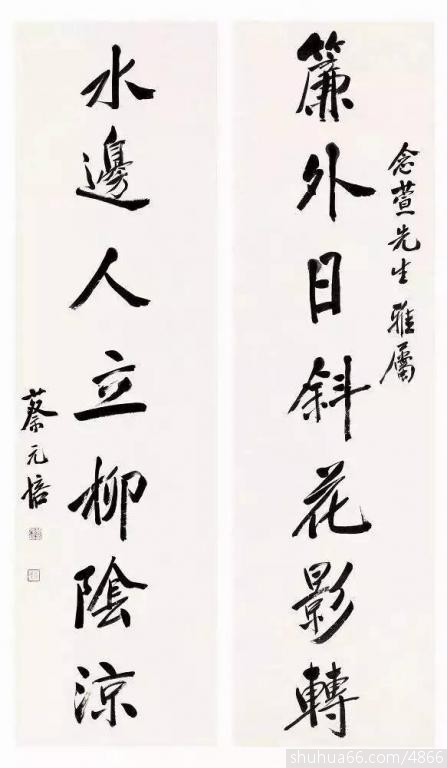 念萱先生雅屬
簾外日斜花影轉
水邊人立柳陰涼
蔡元培
shuhua66.com/4866